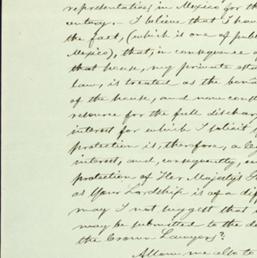 representatives, in Mexico for th
century. I believe that I hav
the fact, (which is one of publ
Mexico), that, in consequence o
that house, my private
law, is treated as the
of the house, and
resource for the full discharg
interest for which I solicit
protection is, therefore, a le
interest, and, consequently,
protection of Her Majesty's
as Your Lordship is of a diff
may I not suggest that
may be submitted to the de
the Crown Lawyers?
Allow me also to